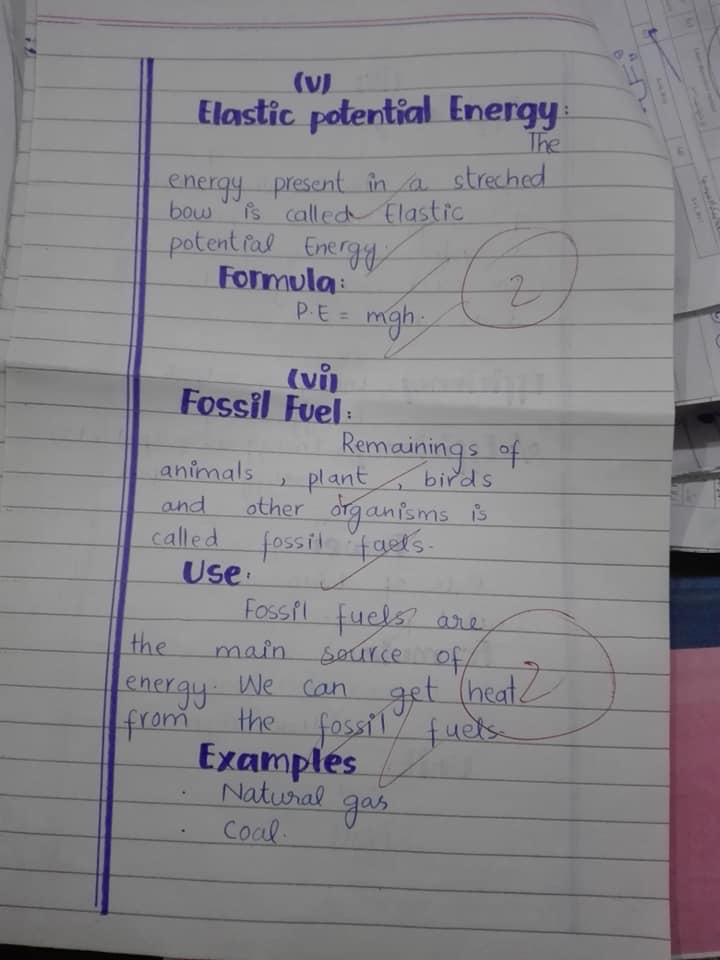 (v)
Elastic potential Energy:
The
energy present in a streched
bow is called Elastic
potential Energy.
Formula:
P.E = mgh.
2
(vi)
Fossil Fuel:
Remainings of
animals , plant , birds
and other organisms is
called fossil faels.
Use:
Fossil fuels are
the main source of
energy. We can get heat
from the fossil fuels.
2
Examples
· Natural gas
· Coal.